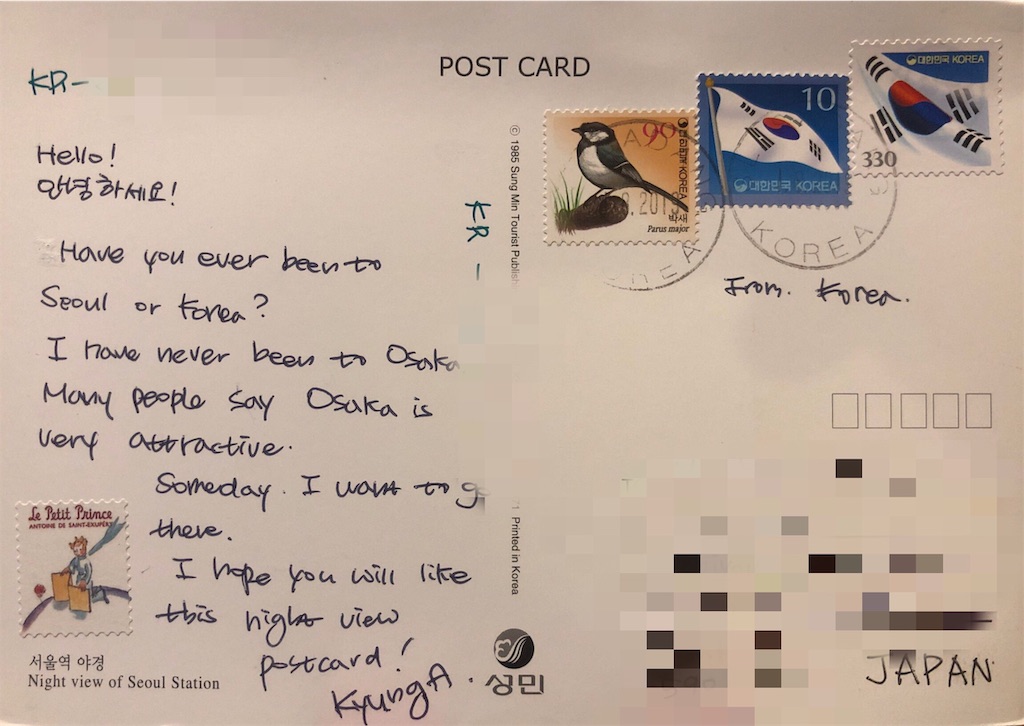 POST CARD
KR-
Hello!
안녕하세요!
Have you ever been to
Seoul or Korea?
I have never been to Osaka
Many people say Osaka is
very attractive.
Someday. I want to go
there.
I hope you will like
this night view
postcard!
KyungA.
Le Petit Prince
ANTOINE DE SAINT-EXUPÉRY
서울역 야경
Night view of Seoul Station
© 1985 Sung Min Tourist Publish
KR-
Printed in Korea
성민
90
대한민국 KOREA
박새
Parus major
10
대한민국 KOREA
대한민국 KOREA
330
KOREA
From. Korea.
JAPAN